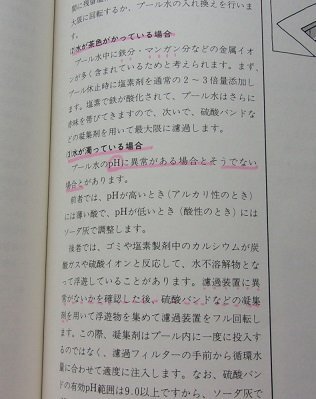 大限に回転するか、プール水の入れ換えを行いま
す。
②水が茶色がかっている場合
プール水中に鉄分・マンガン分などの金属イオ
ンが多く含まれているためと考えられます。まず、
プール休止時に塩素剤を通常の2～3倍量添加し
ます。塩素で鉄が酸化されて、プール水はさらに
赤味を帯びてきますので、次いで、硫酸バンドな
どの凝集剤を用いて最大限に濾過します。
③水が濁っている場合
プール水のpHに異常がある場合とそうでない
場合とがあります。
前者では、pHが高いとき（アルカリ性のとき）
には薄い酸で、pHが低いとき（酸性のとき）には
ソーダ灰で調整します。
後者では、ゴミや塩素製剤中のカルシウムが炭
酸ガスや硫酸イオンと反応して、水不溶解物とな
って浮遊していることがあります。濾過装置に異
常がないかを確認した後、硫酸バンドなどの凝集
剤を用いて浮遊物を集めて濾過装置をフル回転し
ます。この際、凝集剤はプール内に一度に投入す
るのではなく、濾過フィルターの手前から循環水
量に合わせて適度に注入します。なお、硫酸バン
ドの有効pH範囲は9.0以上ですから、ソーダ灰で